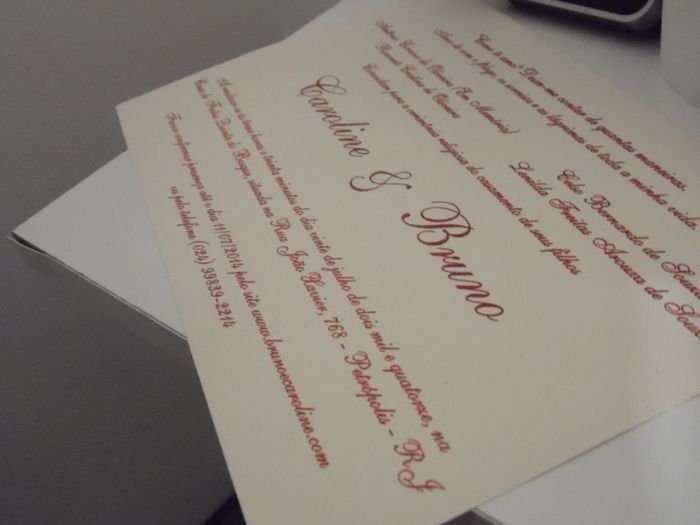 Como te amo? Deixe-me contar de quantas maneiras.
Amo-te com o fôlego, os sorrisos e as lágrimas de toda a minha vida.
de Oliveira (In Memorian)
de Oliveira
Celso Bernardo de
Lenilda Freitas de
Convidam para a cerimônia religiosa de casamento de seus filhos
Caroline & Bruno
A realizar-se às horas e trinta minutos do dia vinte de julho de dois mil e quatorze, na
Casa de Festas do Bosque, situada na Rua João Xavier, 768 - Petrópolis - RJ
Favor confirmar presença até o dia 11/07/2014 pelo site www.brunoecaroline.com
ou pelo telefone (024) 99839-2214